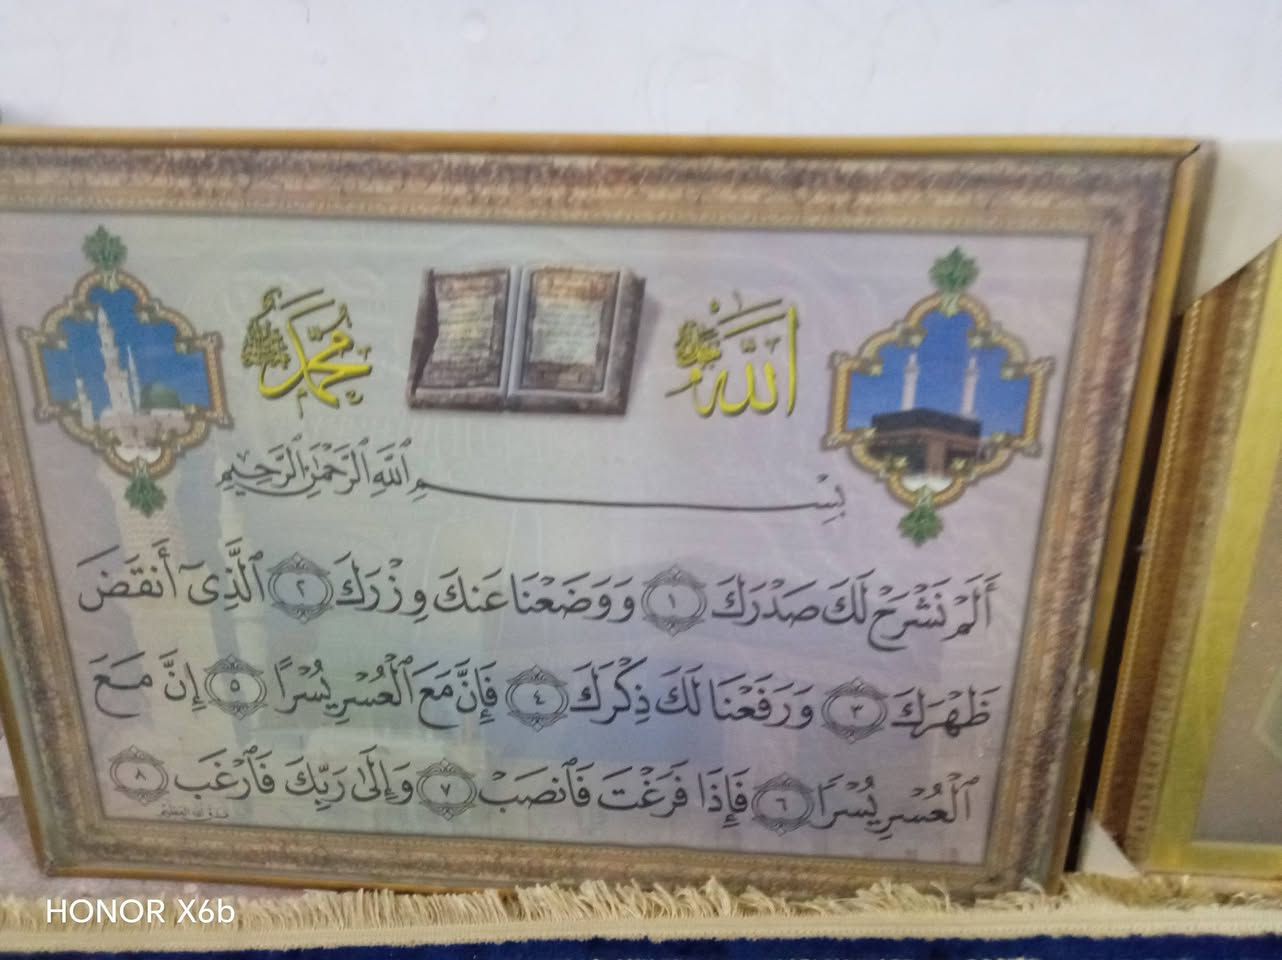 الله جل جلاله
محمد صلى الله عليه وسلم
بِسْمِ ٱللَّهِ ٱلرَّحْمَٰنِ ٱلرَّحِيمِ
أَلَمْ نَشْرَحْ لَكَ صَدْرَكَ ١ وَوَضَعْنَا عَنكَ وِزْرَكَ ٢ ٱلَّذِىٓ أَنقَضَ
ظَهْرَكَ ٣ وَرَفَعْنَا لَكَ ذِكْرَكَ ٤ فَإِنَّ مَعَ ٱلْعُسْرِ يُسْرًا ٥ إِنَّ مَعَ
ٱلْعُسْرِ يُسْرًا ٦ فَإِذَا فَرَغْتَ فَٱنصَبْ ٧ وَإِلَىٰ رَبِّكَ فَٱرْغَب ٨
صدق الله العظيم
HONOR X6b